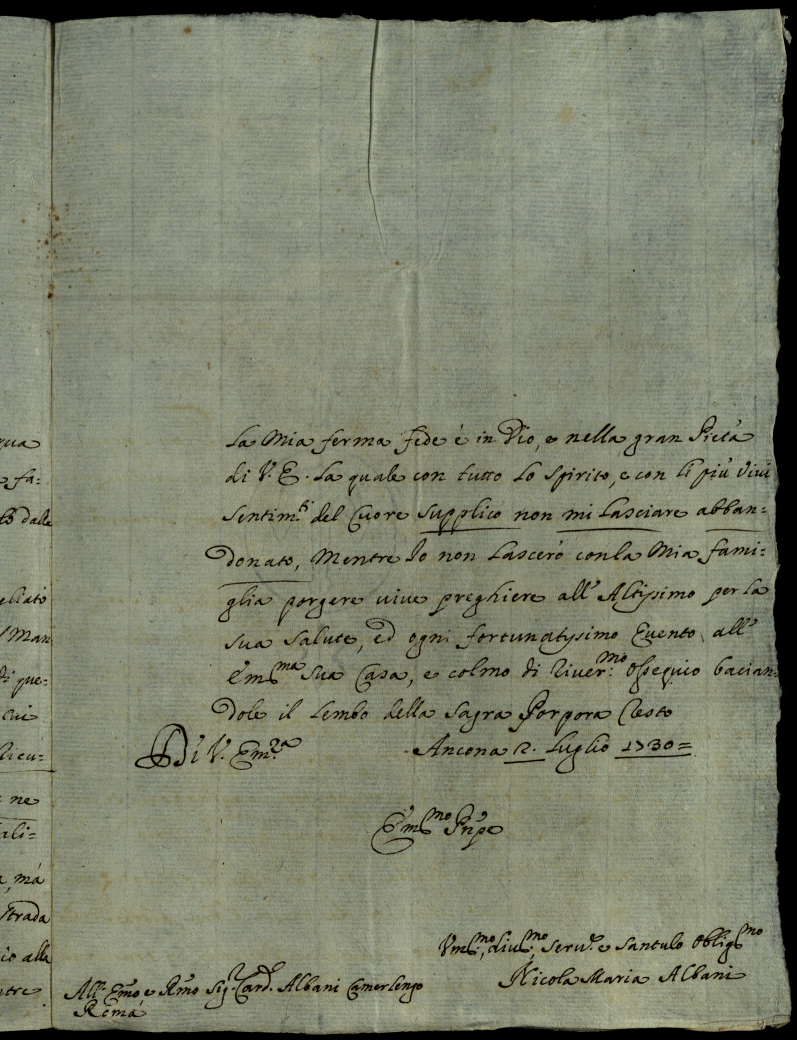 qua
e fa:
dalle
eliato
Man
di que:
cui
ne
ali=
a, mà
strada
cio alla
ntre
La Mia ferma fede è in Dio, e nella gran Pietà
di V. E. La quale con tutto Lo Spirito, e con li più vivi
Sentim.ti del Cuore Supplico non mi Lasciare abban=
donato, Mentre Io non Lascerò conla Mia fami=
glia porgere vive preghiere all' Altissimo per la
sua Salute, ed ogni fortunatissimo Evento all'
Em.ma sua Casa, e colmo di River.mo Ossequio bacian=
dole il Lembo della Sagra Porpora Resto
Di V. Em.za Ancona 2. Luglio 1730=
Em.mo Pñpe
Um.mo, div.mo, Serv.e e Santulo Oblig.mo
Nicola Maria Albani
All' Emo, e Rmo Sig.r Card. Albani Camerlengo
Roma